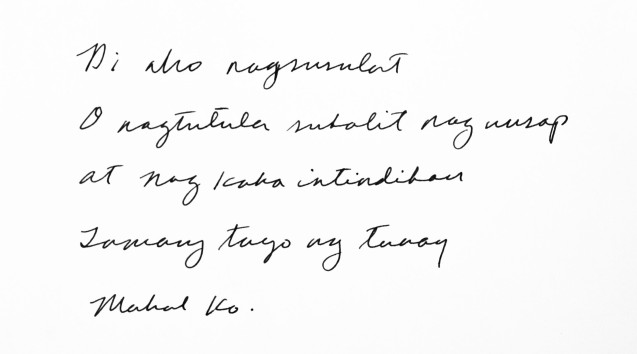 Di ako nagsusulat
O nagtutula subalit nag uusap
at nag kaka intindihan
Lamang tayo ng tunay
Mahal ko.